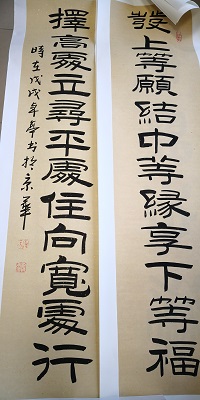 發上等願結中等緣享下等福
擇高處立尋平處住向寬處行
時在戊戌年亭书於京華